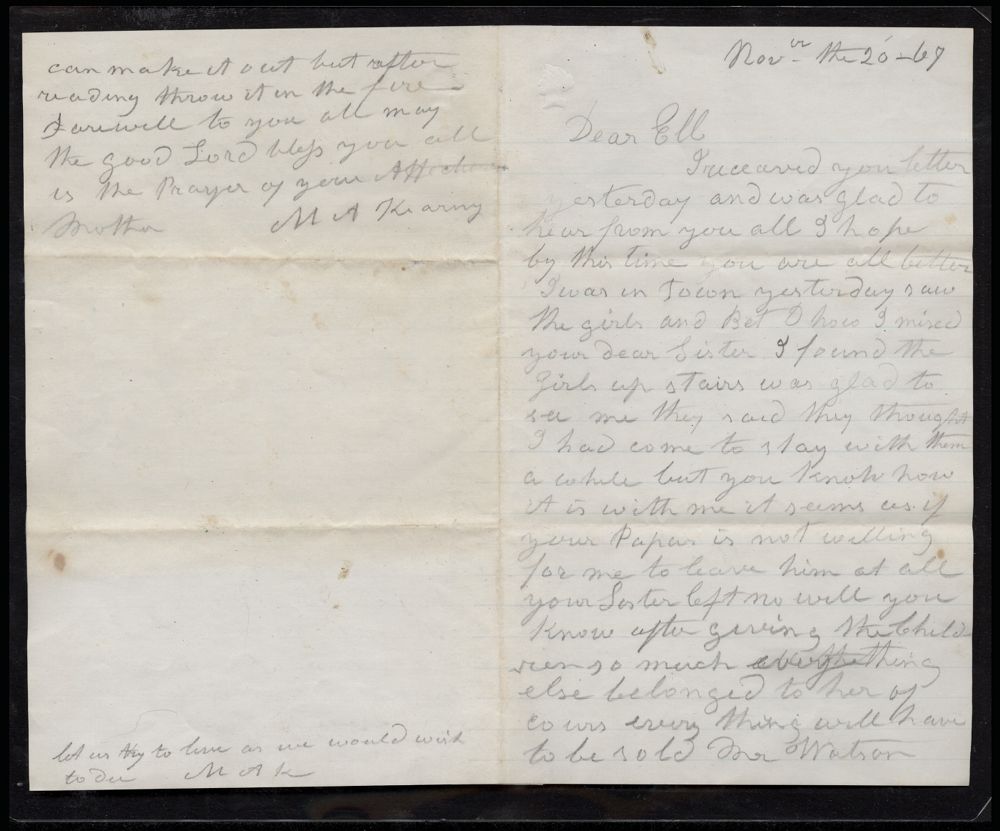 Novr the 20 - 67
Dear Ell
I receaved you letter
yesterday and was glad to
hear from you all I hope
by this time you are all better
I was in Town yesterday saw
the girls and Bet O how I mised
your dear Sister I found the
Girls up stairs was glad to
see me they said they thought
I had come to stay with them
a while but you know how
it is with me it seems as if
your Papar is not willing
for me to leave him at all
your Sister left no will you
know after giveing the Child
ren so much everything
else belonged to her of
cours every thing will have
to be sold Mr Watson
can make it out but after
reading throw it in the fire
Farewell to you all may
the good Lord bless you all
is the Prayer of your Affectionate
Mother M A Kearny
let us try to live as we would wish
to die M A K